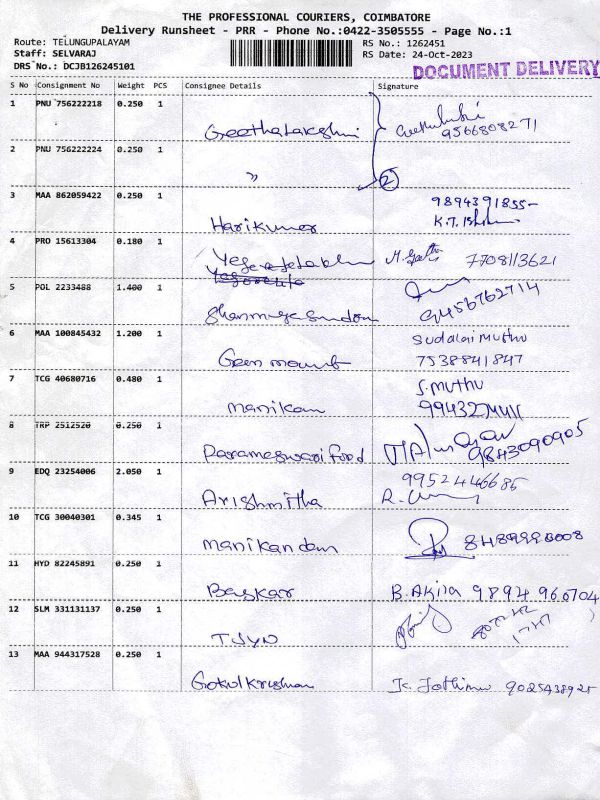 THE PROFESSIONAL COURIERS, COIMBATORE
Delivery Runsheet - PRR - Phone No.:0422-3505555 - Page No.:1
Route: TELUNGUPALAYAM RS No.: 1262451
Staff: SELVARAJ RS Date: 24-Oct-2023
DRS No.: DCJB126245101 DOCUMENT DELIVERY
S No Consignment No Weight PCS Consignee Details Signature
1 PNU 756222218 0.250 1
Geethalakshmi 9566808271
2 PNU 756222224 0.250 1
" 2
3 MAA 862059422 0.250 1 9894391855-
Harikumar K.T.
4 PRO 15613304 0.180 1
7708113621
5 POL 2233488 1.400 1
Shanmugasundom 9456762714
6 MAA 100845432 1.200 1 Sudalai Muthu
Green mount 7538841847
7 TCG 40680716 0.480 1 S. Muthu
manikan 99432
8 TRP 2512520 0.250 1
Parameswari food 9843090905
9 EDQ 23254006 2.050 1 9952446685
Arishmitha R.
10 TCG 30040301 0.345 1
manikandan 8489998008
11 HYD 82245891 0.250 1
Baskar B. Akila 9894 966704
12 SLM 331131137 0.250 1
TSYN
13 MAA 944317528 0.250 1
Gokulkrishnan 9025438925